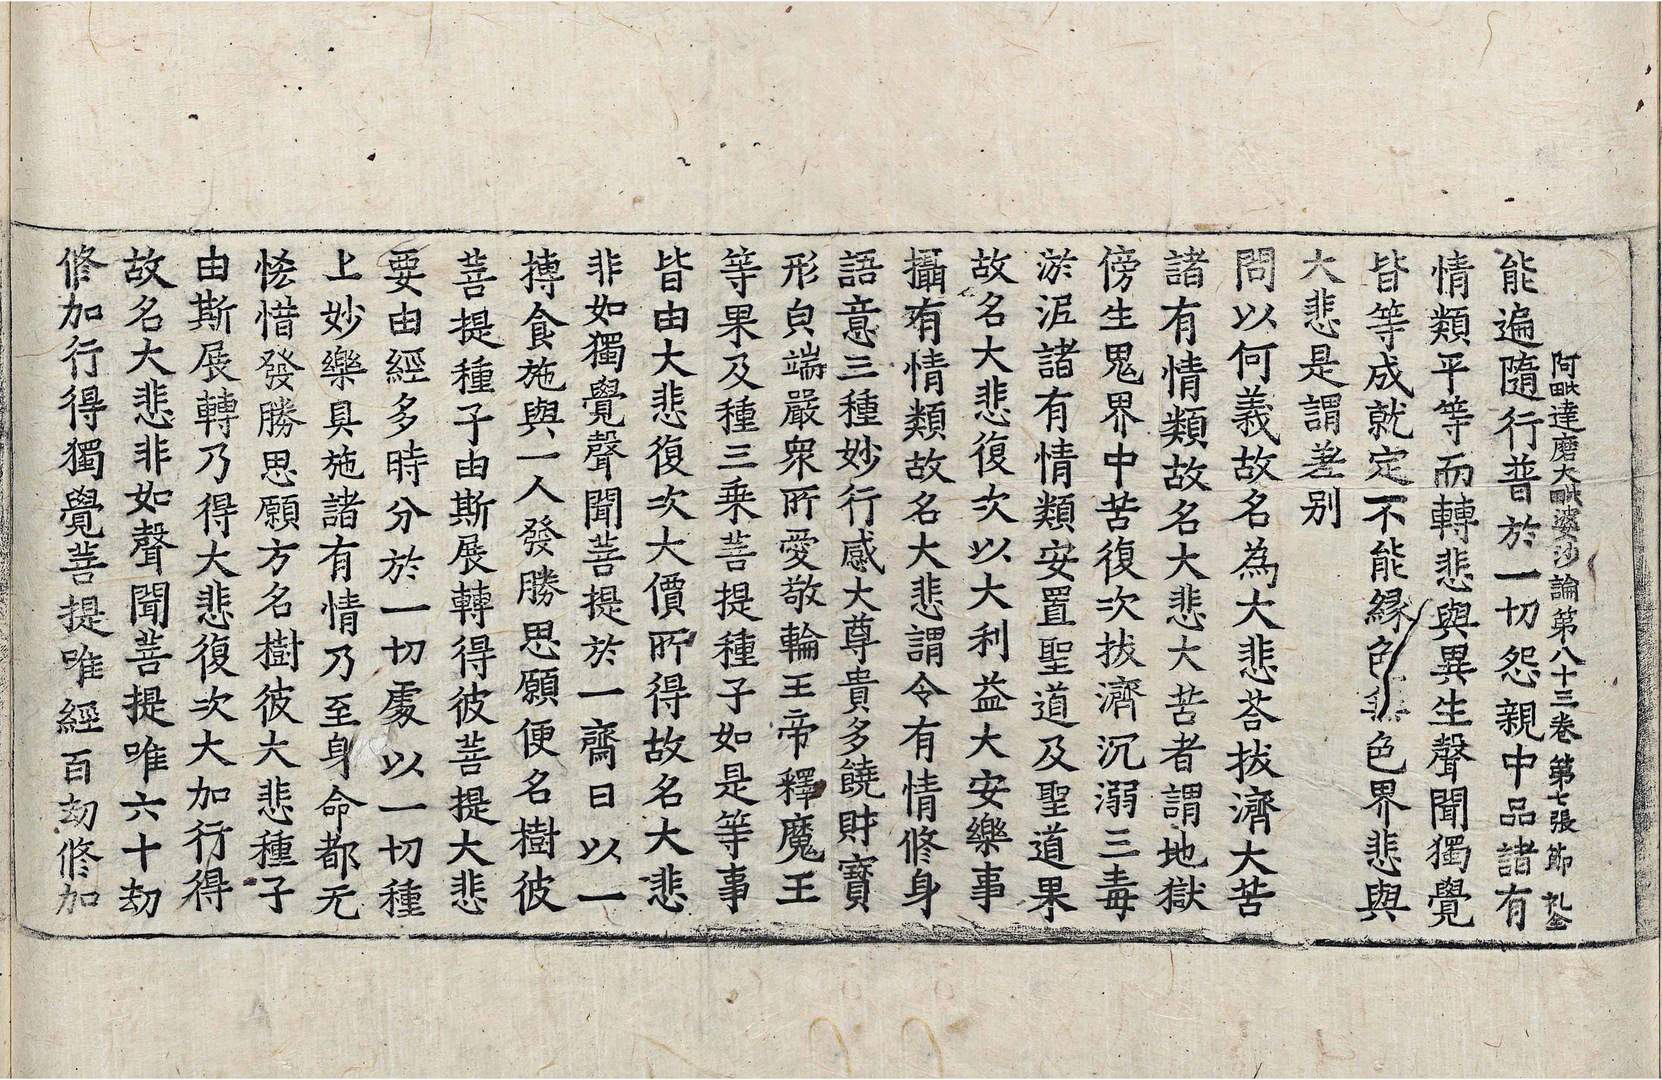 阿毗達磨大毗婆沙論第八十三卷 第七張 節 礼全
能遍隨行普於一切怨親中品諸有
情類平等而轉悲與異生聲聞獨覺
皆等成就定不能緣色無色界悲與
大悲是謂差别
問以何義故名為大悲荅拔濟大苦
諸有情類故名大悲大苦者謂地獄
傍生鬼界中苦復次拔濟沉溺三毒
淤泥諸有情類安置聖道及聖道果
故名大悲復次以大利益大安樂事
攝有情類故名大悲謂令有情修身
語意三種妙行感大尊貴多饒財寶
形皃端嚴衆所愛敬輪王帝釋魔王
等果及種三乗菩提種子如是等事
皆由大悲復次大價所得故名大悲
非如獨覺聲聞菩提於一齋日以一
摶食施與一人發勝思願便名樹彼
菩提種子由斯展轉得彼菩提大悲
要由經多時分於一切處以一切種
上妙樂具施諸有情乃至身命都无
恡惜發勝思願方名樹彼大悲種子
由斯展轉乃得大悲復次大加行得
故名大悲非如聲聞菩提唯六十劫
修加行得獨覺菩提唯經百劫修加